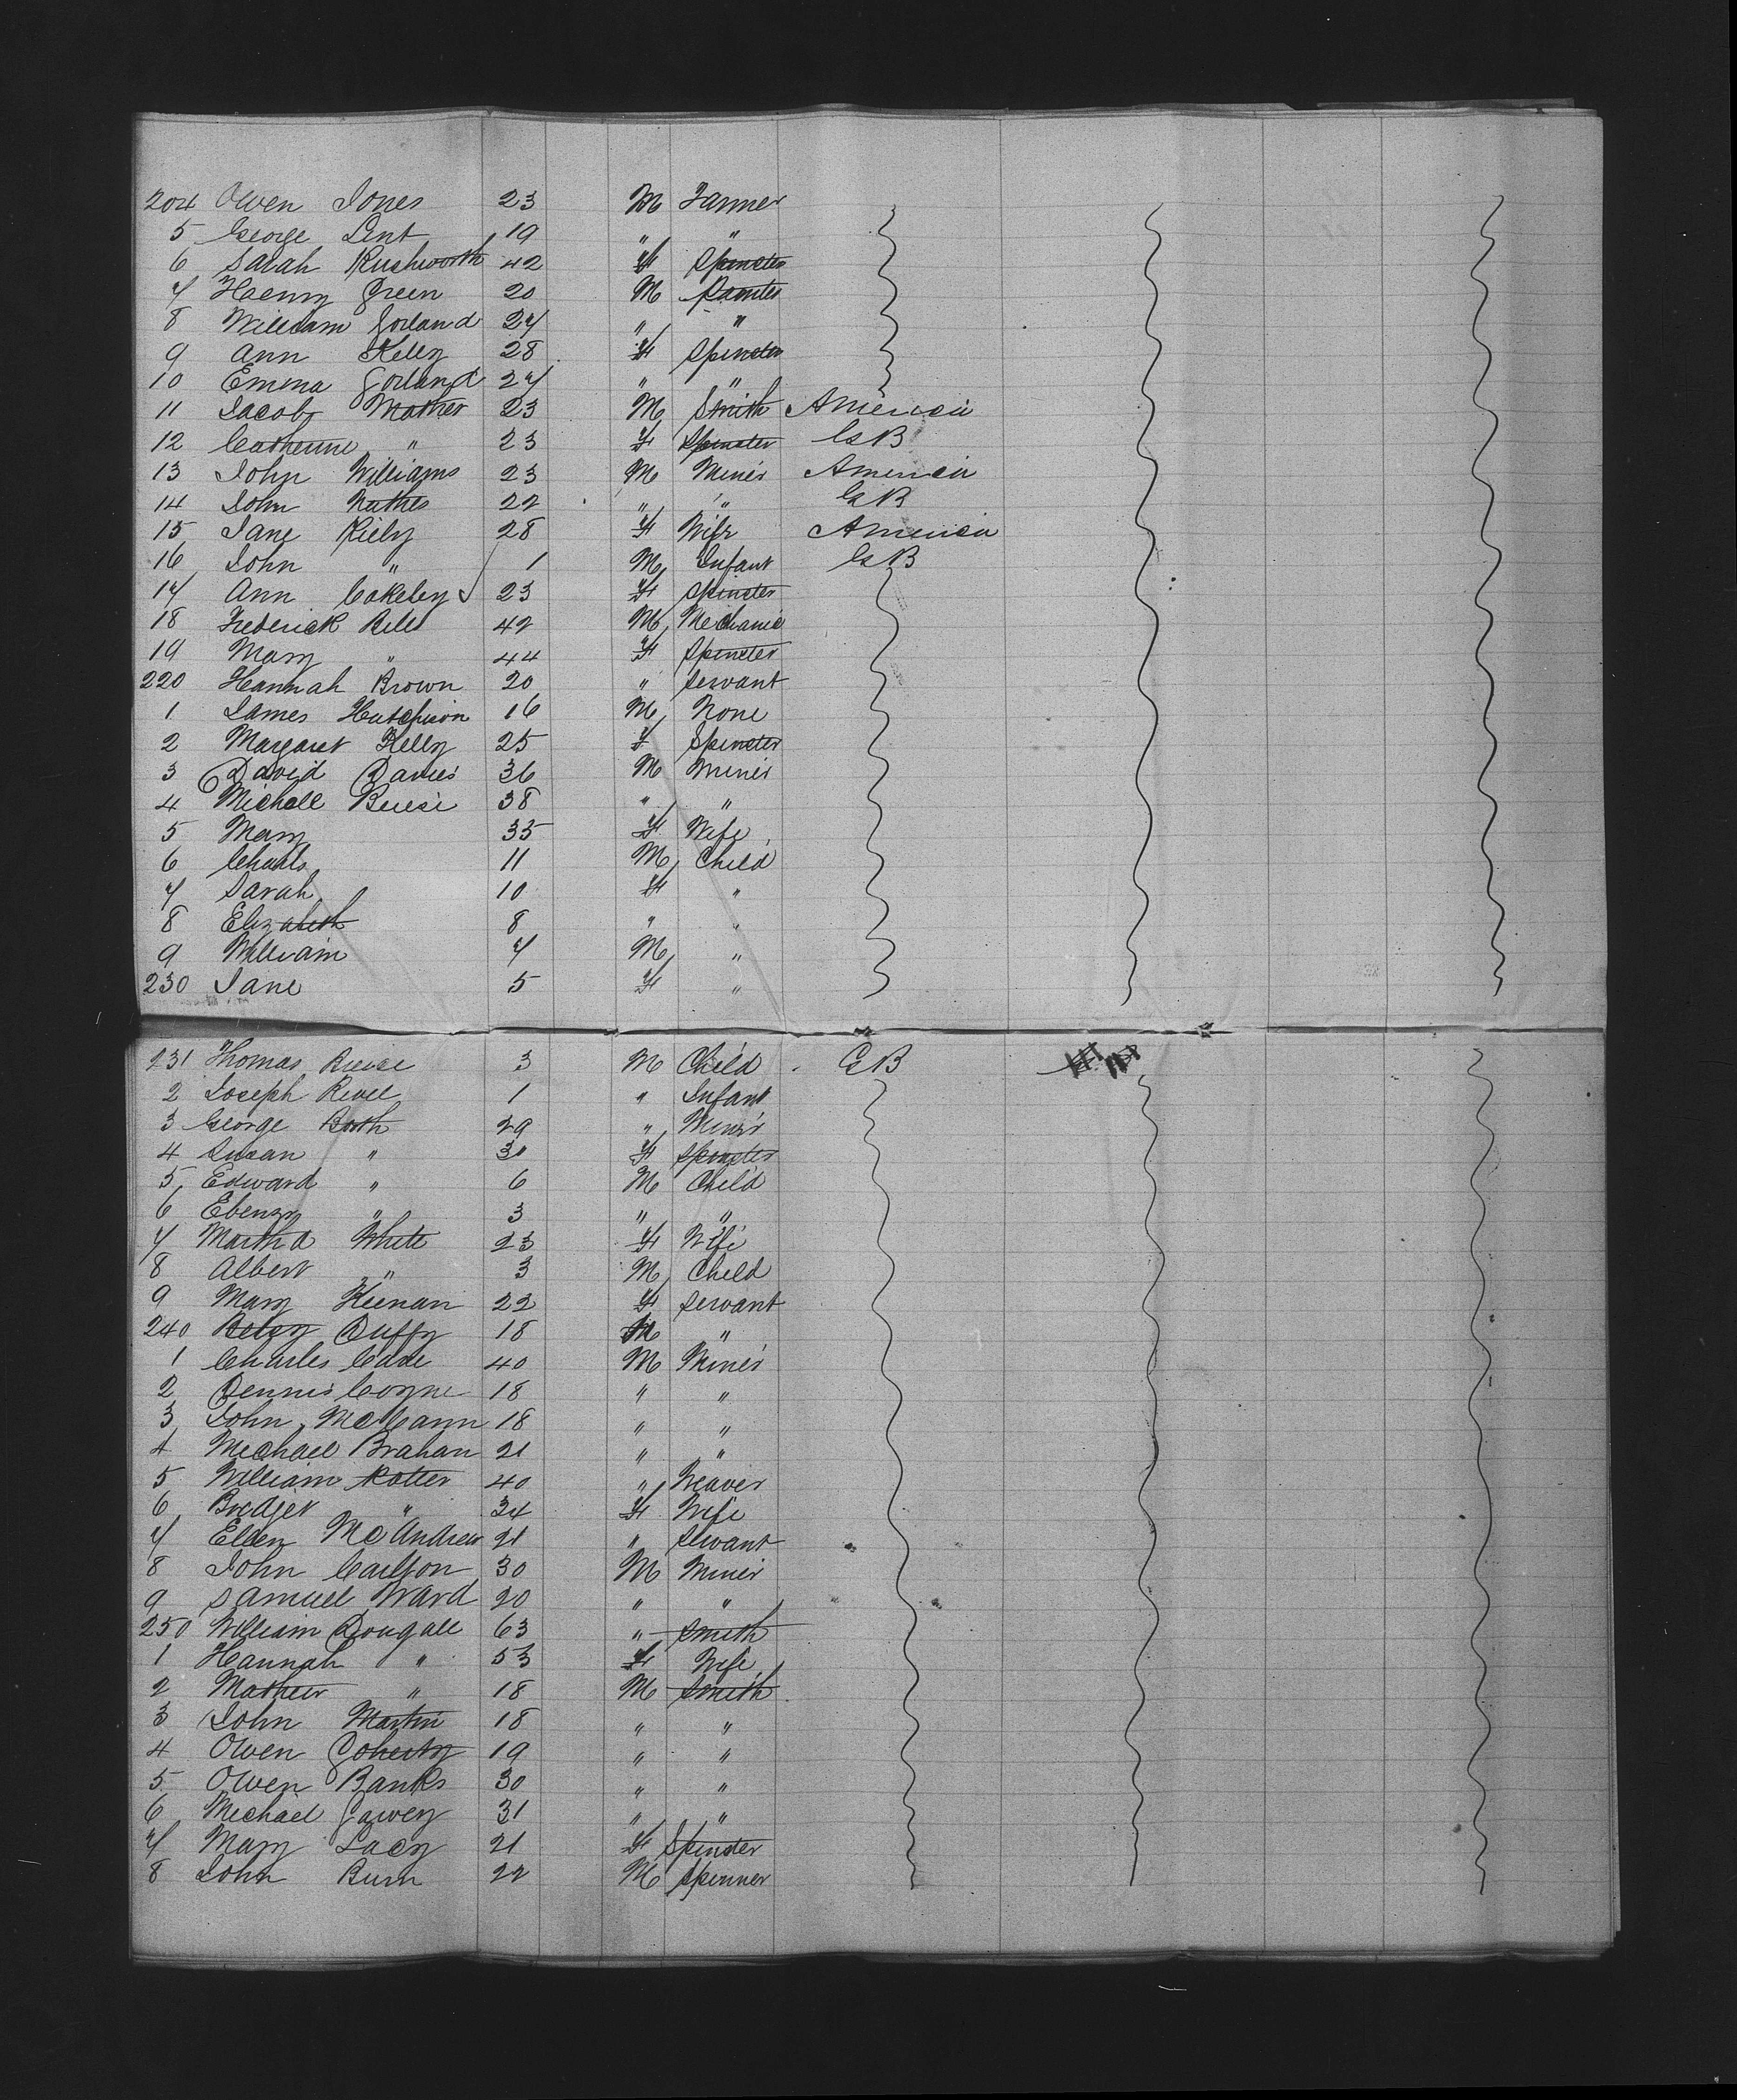 204 Owen Jones 23 M Farmer
5 George Lent 19 " "
6 Sarah Rushworth 42 F Spinster
7 Henry Green 20 M Painter
8 William Gorland 27 " "
9 Ann Kelly 28 F Spinster
10 Emma Gorland 27 " "
11 Jacob Mather 23 M Smith America
12 Catherine " 23 F Spinster GB
13 John Williams 23 M Miner America
14 John 22 " " GB
15 Jane Riely 28 F Wife America
16 John " 1 M Infant GB
17 Ann Cokeley 23 F Spinster
18 Frederick 42 M Mechanic
19 Mary " 44 F Spinster
220 Hannah Brown 20 " Servant
1 James Hutchison 16 M None
2 Margaret Kelly 25 F Spinster
3 David Davies 36 M Miner
4 Michael 38 " "
5 Mary 35 F Wife
6 Charls 11 M Child
7 Sarah 10 F "
8 Elizabeth 8 " "
9 William 7 M "
230 Jane 5 F "
231 Thomas 3 M Child GB
2 Joseph 1 " Infant
3 George Booth 29 " Miner
4 Susan " 30 F Spinster
5 Edward " 6 M Child
6 " 3 " "
7 Martha White 23 F Wife
8 Albert " 3 M Child
9 Mary Keenan 22 F Servant
240 Betsy Duffy 18 "
1 Charles Case 40 M Miner
2 Dennis Coyne 18 " "
3 John McCann 18 " "
4 Michael Brahan 21 " "
5 William Potter 40 " Weaver
6 Bredget " 34 F Wife
7 Ellen McAndrew 21 " Servant
8 John Carlson 30 M Miner
9 Samuel Ward 20 " "
250 William Dougall 63 " Smith
1 Hannah " 53 F Wife
2 Mathew " 18 M Smith
3 John Martin 18 " "
4 Owen Goherty 19 " "
5 Owen Banks 30 " "
6 Michael Gawey 31 " "
7 Mary Lacy 21 F Spinster
8 John Burn 22 M Spinner